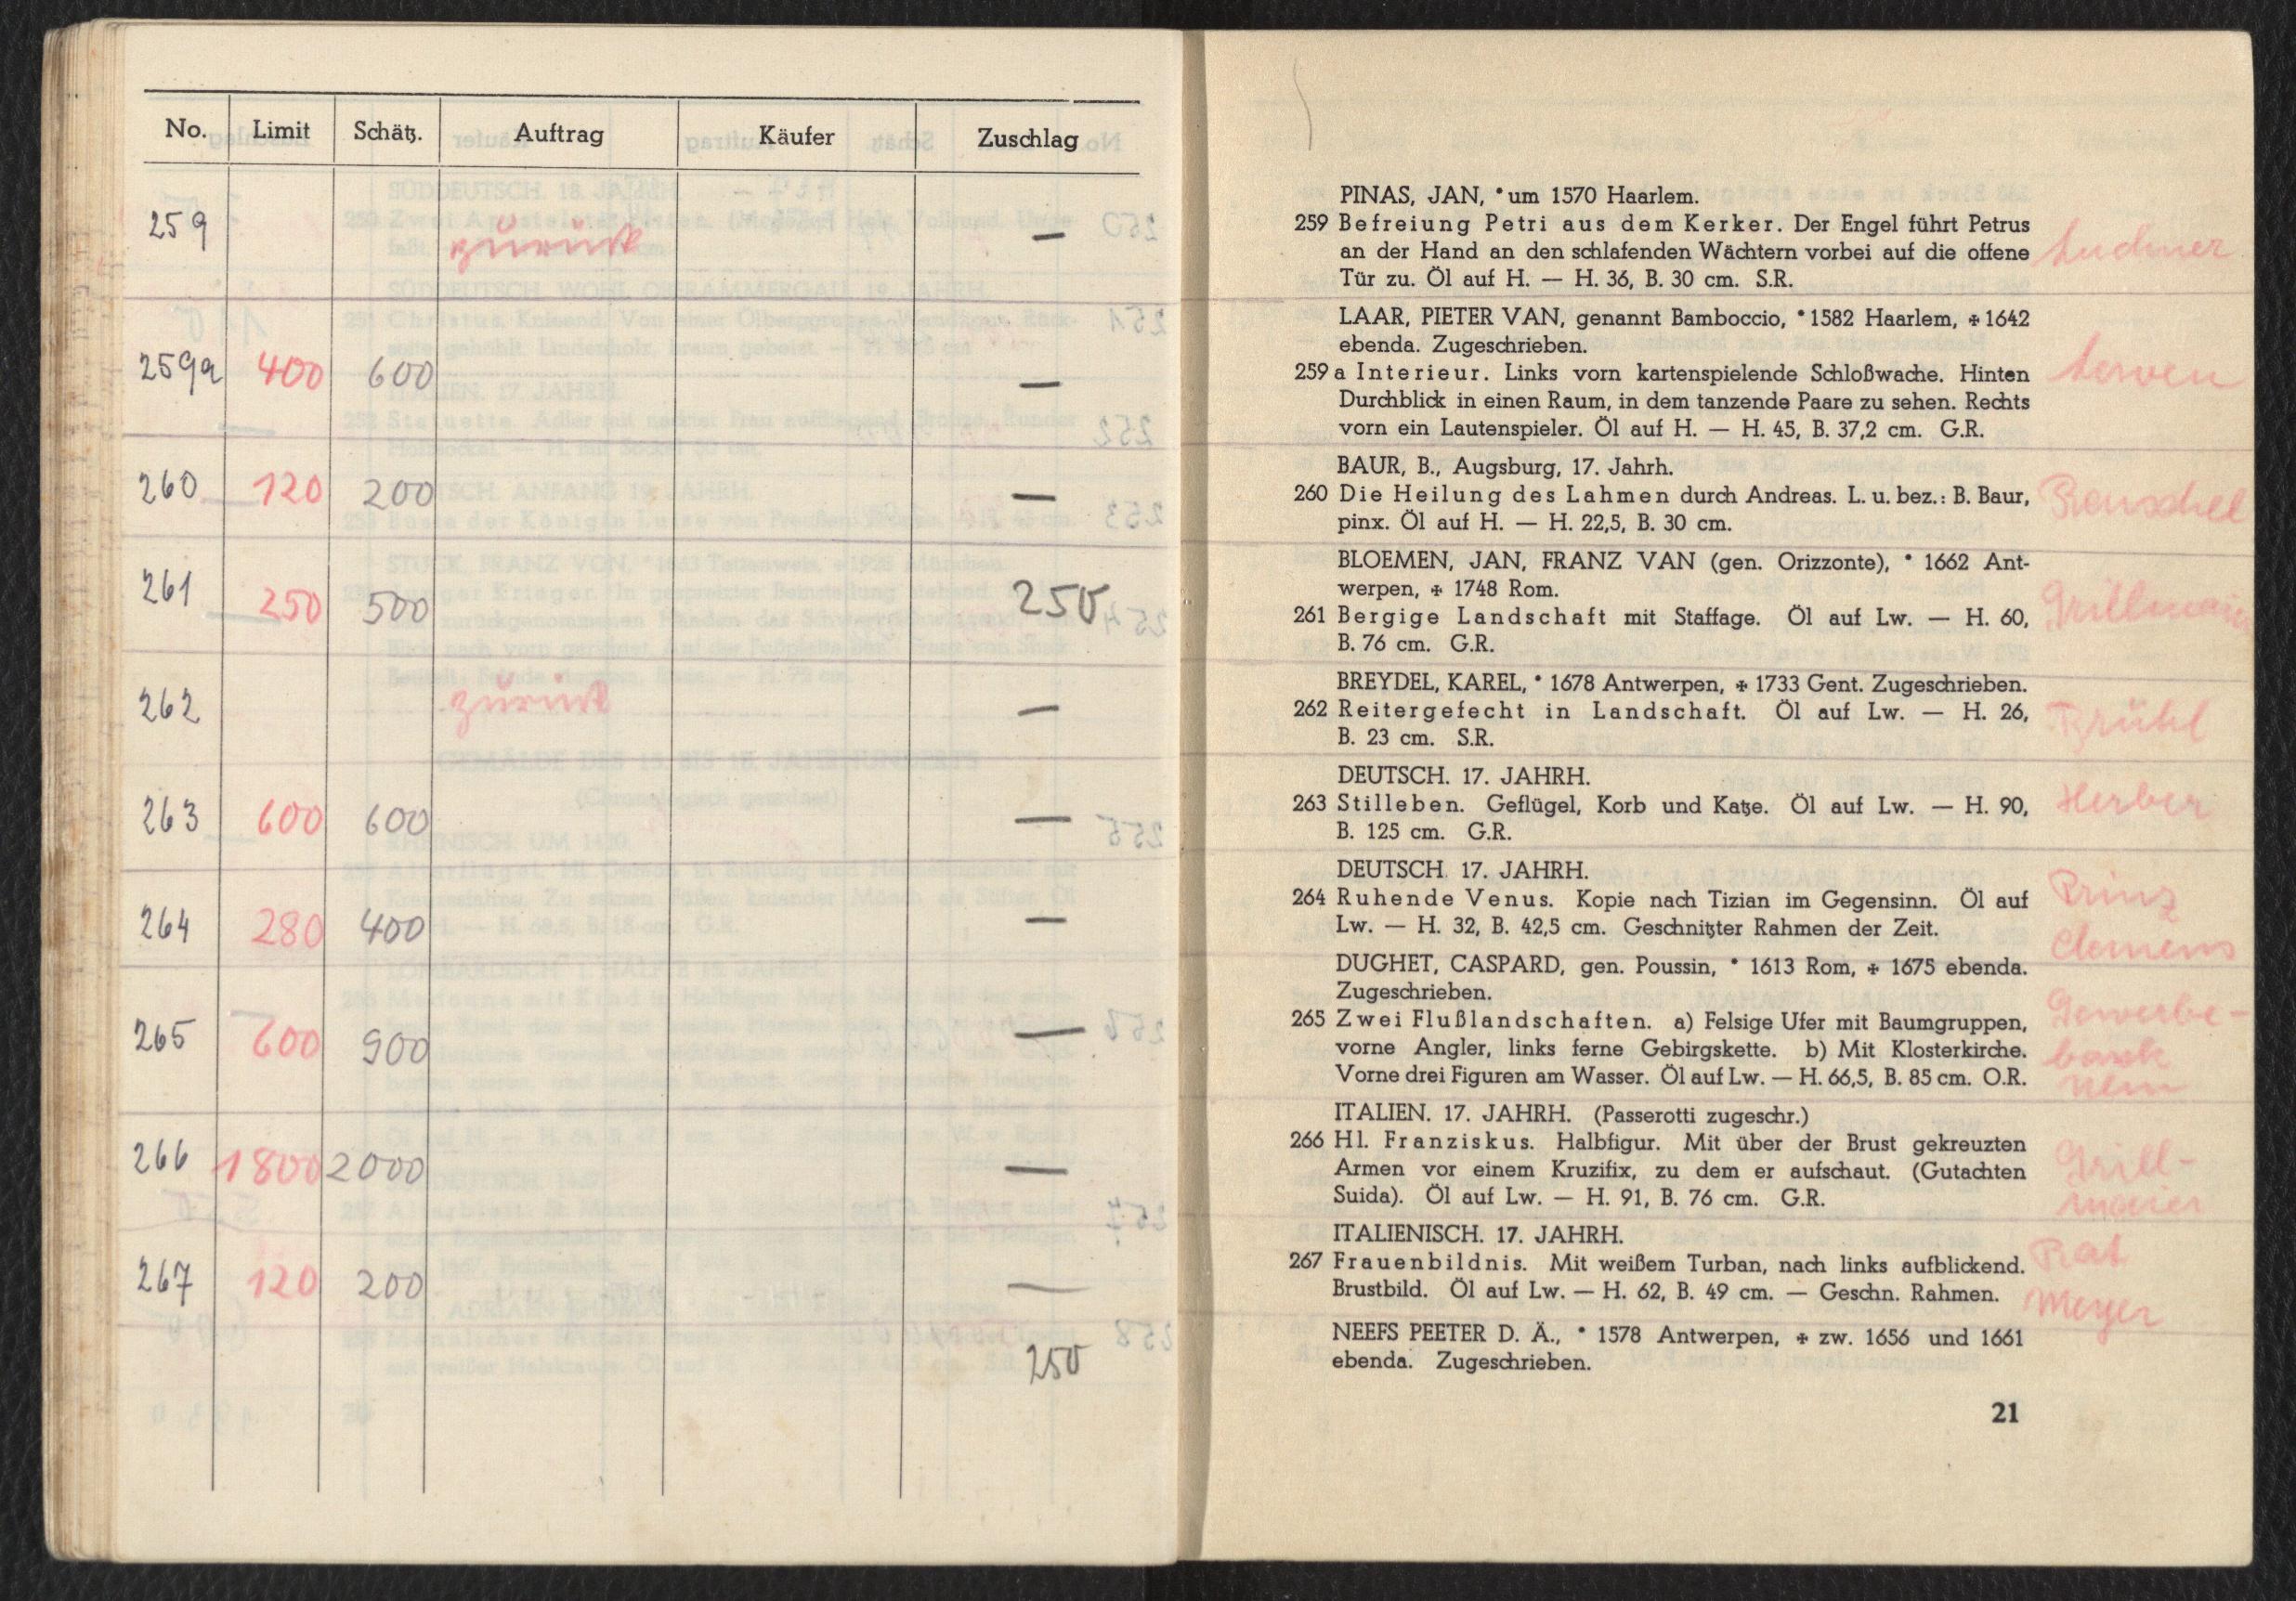 No. Limit Schätz. Auftrag Käufer Zuschlag
259 zurück —
259a 400 600 —
260 120 200 —
261 250 500 250
262 zurück —
263 600 600 —
264 280 400 —
265 600 900 —
266 1800 2000 —
267 120 200 —
250
PINAS, JAN, * um 1570 Haarlem.
259 Befreiung Petri aus dem Kerker. Der Engel führt Petrus
an der Hand an den schlafenden Wächtern vorbei auf die offene
Tür zu. Öl auf H. — H. 36, B. 30 cm. S.R.
LAAR, PIETER VAN, genannt Bamboccio, * 1582 Haarlem, ✠ 1642
ebenda. Zugeschrieben.
259 a Interieur. Links vorn kartenspielende Schloßwache. Hinten
Durchblick in einen Raum, in dem tanzende Paare zu sehen. Rechts
vorn ein Lautenspieler. Öl auf H. — H. 45, B. 37,2 cm. G.R.
BAUR, B., Augsburg, 17. Jahrh.
260 Die Heilung des Lahmen durch Andreas. L. u. bez.: B. Baur,
pinx. Öl auf H. — H. 22,5, B. 30 cm.
BLOEMEN, JAN, FRANZ VAN (gen. Orizzonte), * 1662 Ant-
werpen, ✠ 1748 Rom.
Grillmaier
261 Bergige Landschaft mit Staffage. Öl auf Lw. — H. 60,
B. 76 cm. G.R.
BREYDEL, KAREL, * 1678 Antwerpen, ✠ 1733 Gent. Zugeschrieben.
262 Reitergefecht in Landschaft. Öl auf Lw. — H. 26,
Brühl
B. 23 cm. S.R.
DEUTSCH. 17. JAHRH.
263 Stilleben. Geflügel, Korb und Katze. Öl auf Lw. — H. 90,
Herber
B. 125 cm. G.R.
DEUTSCH. 17. JAHRH.
Prinz
264 Ruhende Venus. Kopie nach Tizian im Gegensinn. Öl auf
Lw. — H. 32, B. 42,5 cm. Geschnitzter Rahmen der Zeit.
Clemens
DUGHET, CASPARD, gen. Poussin, * 1613 Rom, ✠ 1675 ebenda.
Zugeschrieben.
Gewerbe-
265 Zwei Flußlandschaften. a) Felsige Ufer mit Baumgruppen,
vorne Angler, links ferne Gebirgskette. b) Mit Klosterkirche.
bank
Vorne drei Figuren am Wasser. Öl auf Lw. — H. 66,5, B. 85 cm. O.R.
ITALIEN. 17. JAHRH. (Passerotti zugeschr.)
266 Hl. Franziskus. Halbfigur. Mit über der Brust gekreuzten
Grill-
Armen vor einem Kruzifix, zu dem er aufschaut. (Gutachten
Suida). Öl auf Lw. — H. 91, B. 76 cm. G.R.
maier
ITALIENISCH. 17. JAHRH.
Rat
267 Frauenbildnis. Mit weißem Turban, nach links aufblickend.
Brustbild. Öl auf Lw. — H. 62, B. 49 cm. — Geschn. Rahmen.
Meyer
NEEFS PEETER D. Ä., * 1578 Antwerpen, ✠ zw. 1656 und 1661
ebenda. Zugeschrieben.
21